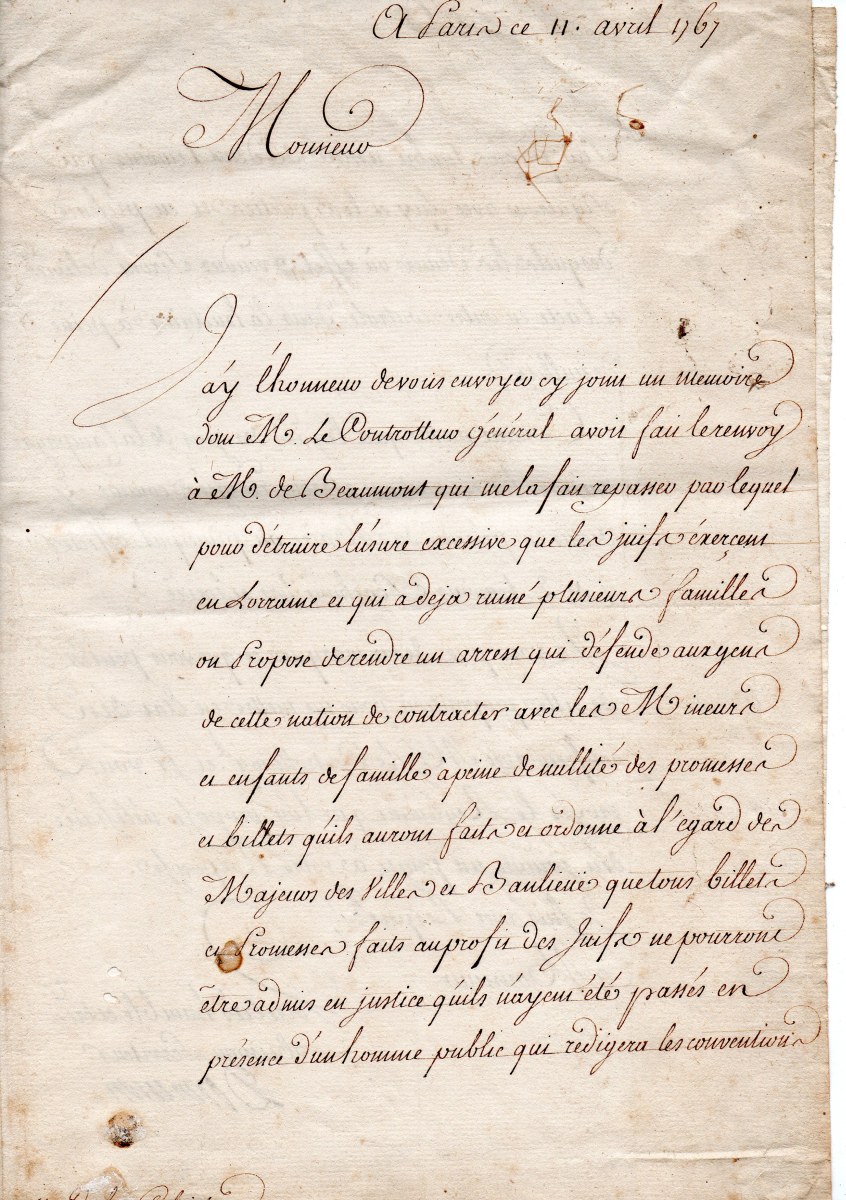 A Paris ce 11. avril 1767
Monsieur
J'ay l'honneur de vous envoyer cy joint un memoire
dont M. Le Controlleur général avoit fait le renvoy
à M. de Beaumont qui me la fait repasser par lequel
pour détruire l'usure excessive que les juifs éxerçent
en Lorraine et qui a deja ruiné plusieurs familles
on Propose de rendre un arrest qui défende aux gens
de cette nation de contracter avec les Mineurs
et enfants de famille à peine de nullité des promesses
et billets qu'ils auront faits et ordonne à l'egard des
Majeurs des Villes et Banlieuë que tous billets
et Promesses faits au profit des Juifs ne pourront
être admis en justice qu'ils n'ayent été passés en
présence d'un homme public qui rédigera les conventions